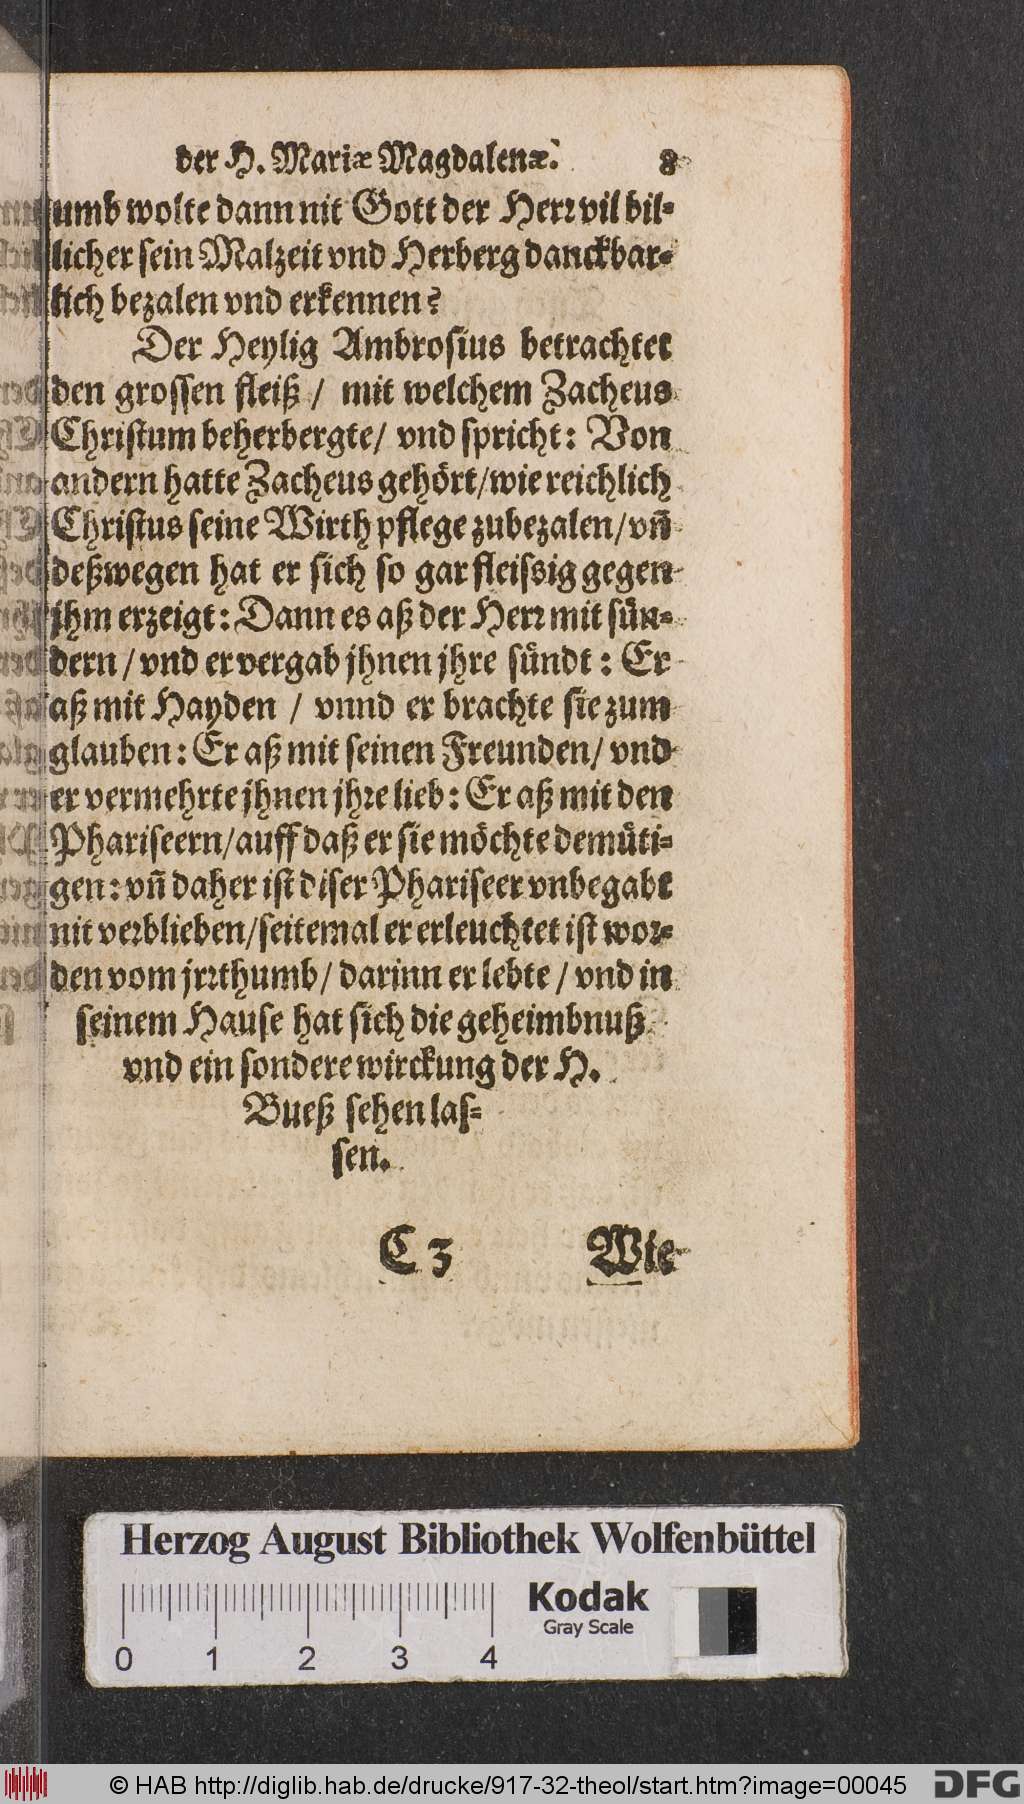 der H. Mariæ Magdalenæ. 8
umb wolte dann nit Gott der Herr vil bil-
licher sein Malzeit vnd Herberg danckbar-
lich bezalen vnd erkennen?
Der Heylig Ambrosius betrachtet
den grossen fleiß / mit welchem Zacheus
Christum beherbergte/ vnd spricht: Von
andern hatte Zacheus gehört/wie reichlich
Christus seine Wirth pflege zubezalen/vn̄
deßwegen hat er sich so gar fleissig gegen
jhm erzeigt: Dann es aß der Herr mit sün-
dern / vnd er vergab jhnen jhre sündt: Er
aß mit Hayden / vnnd er brachte sie zum
glauben: Er aß mit seinen Freunden/ vnd
er vermehrte jhnen jhre lieb: Er aß mit den
Phariseern/auff daß er sie möchte demüti-
gen: vn̄ daher ist diser Phariseer vnbegabt
nit verblieben/seitemal er erleuchtet ist wor-
den vom jrrthumb/ darinn er lebte / vnd in
seinem Hause hat sich die geheimbnuß
vnd ein sondere wirckung der H.
Bueß sehen las-
sen.
C 3 Wie
Herzog August Bibliothek Wolfenbüttel
Kodak
Gray Scale
0 1 2 3 4
© HAB http://diglib.hab.de/drucke/917-32-theol/start.htm?image=00045
DFG